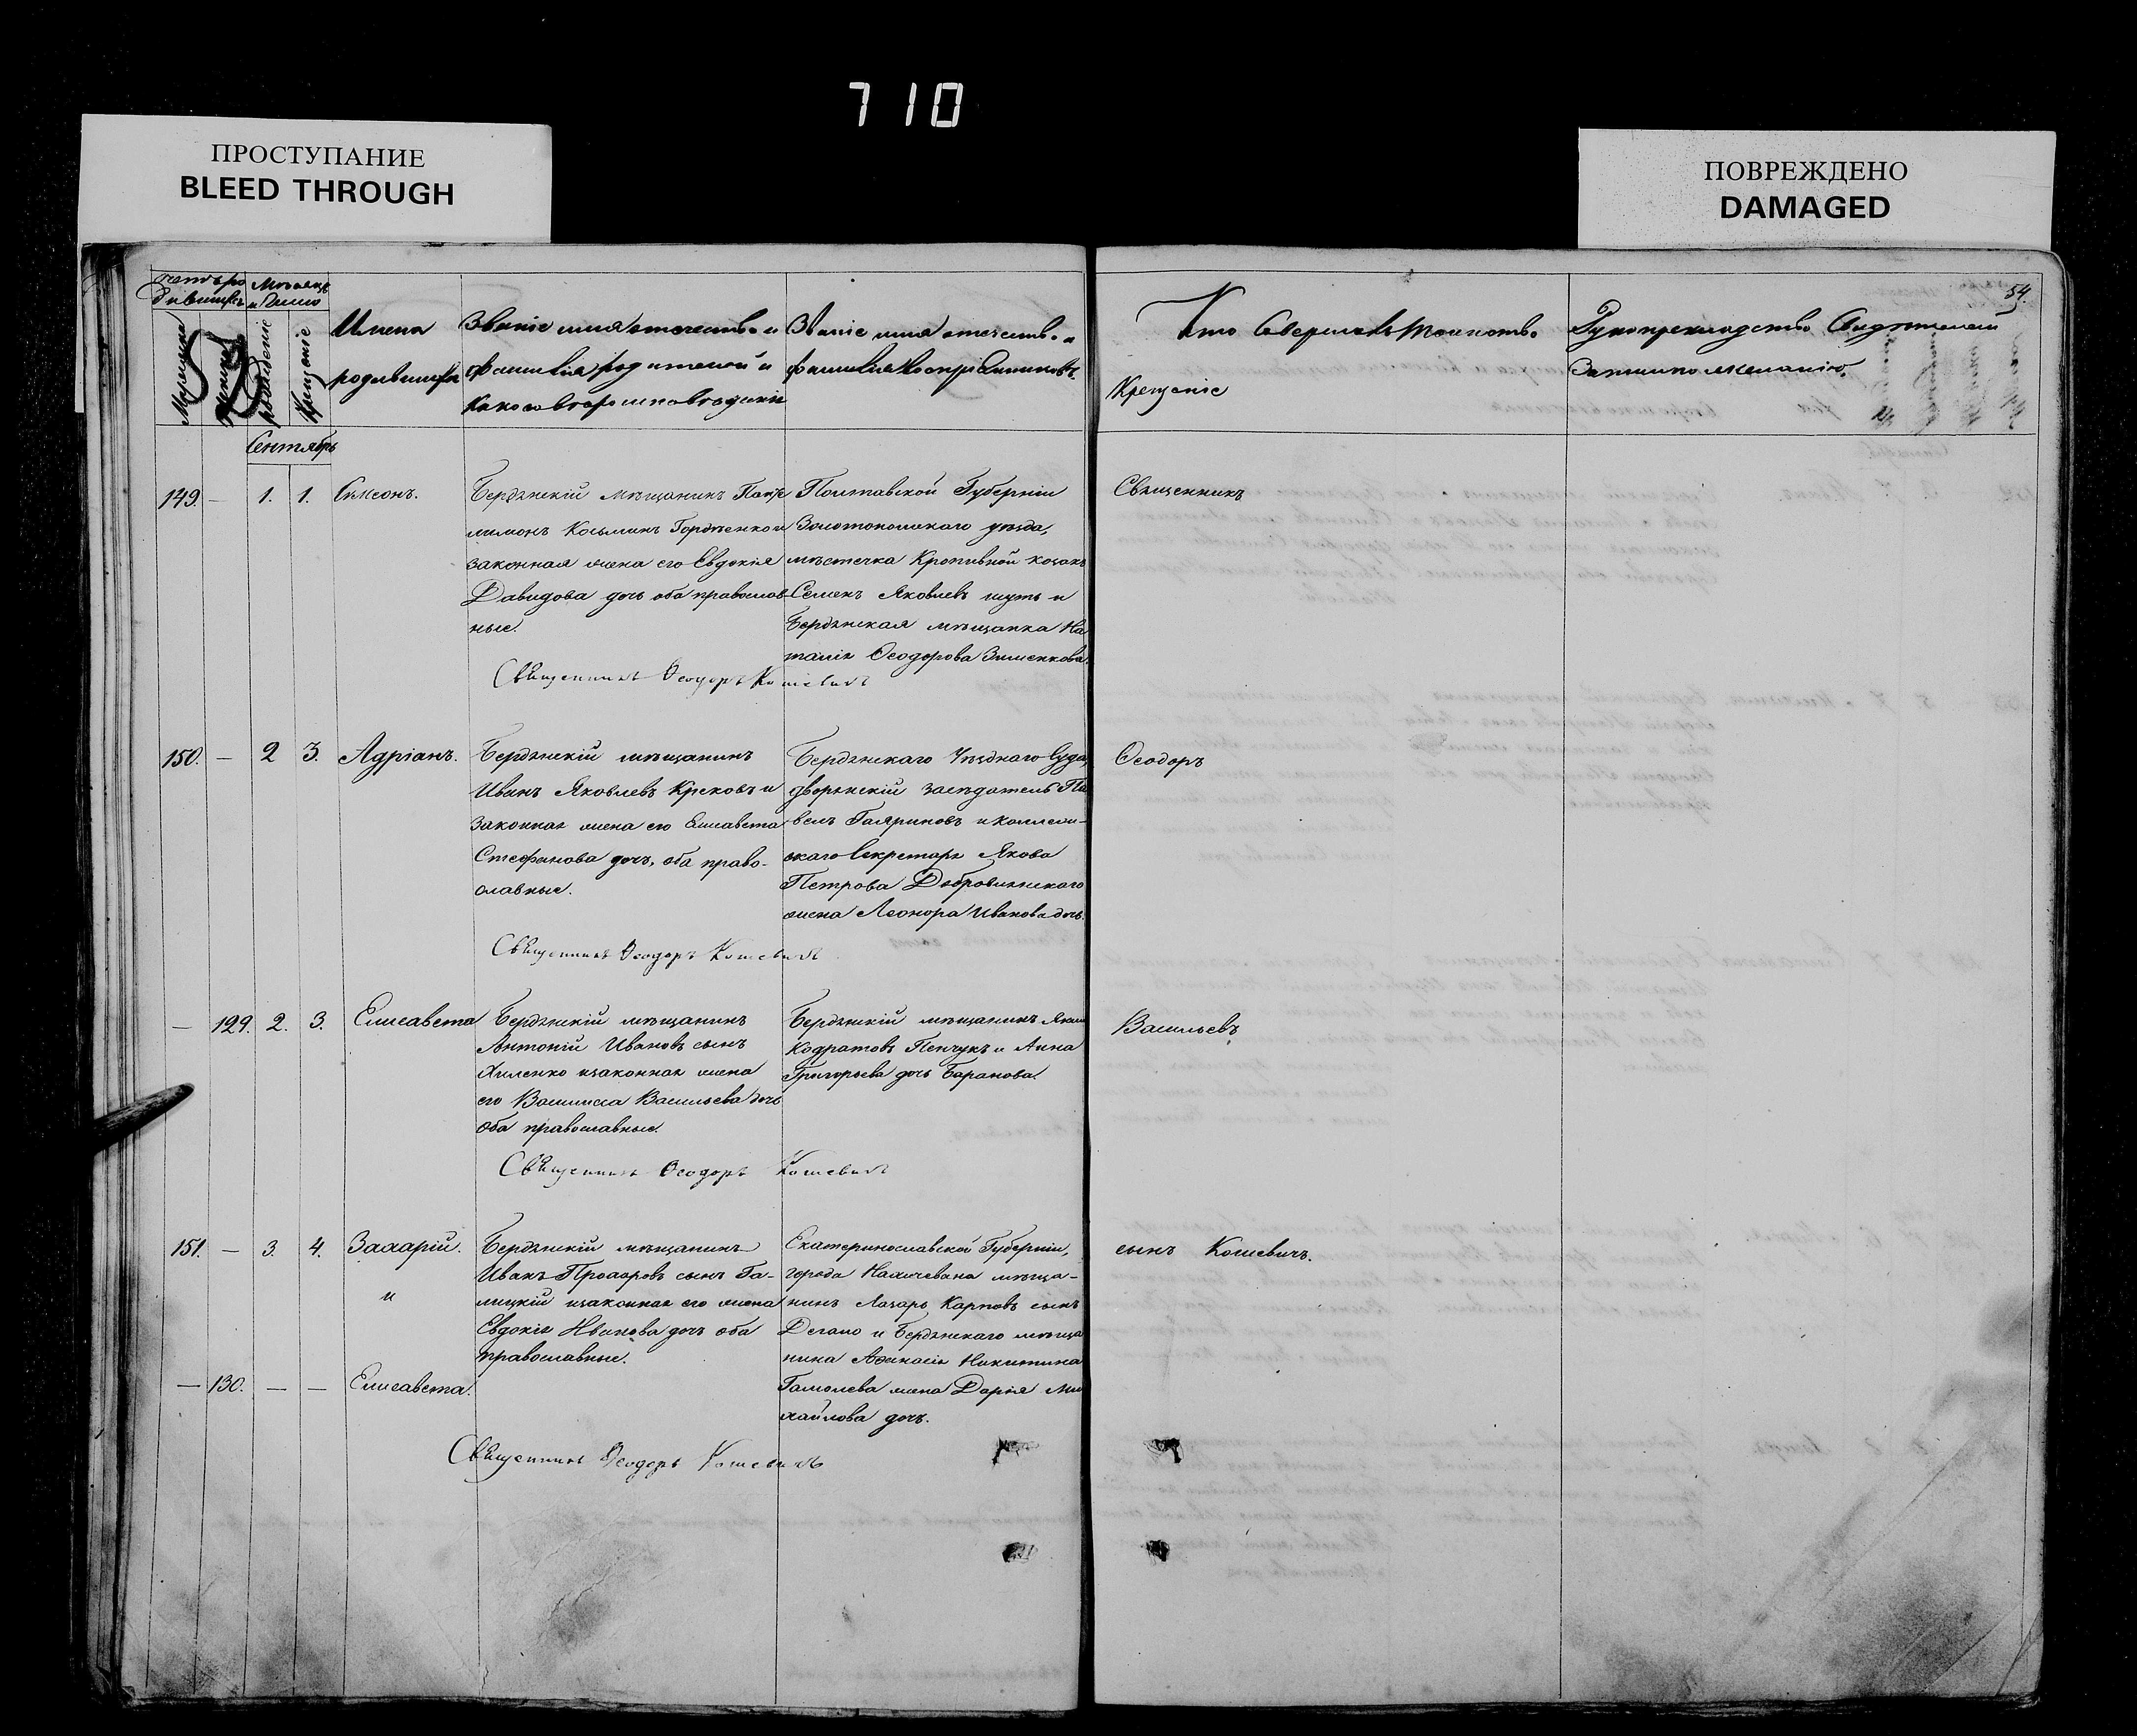 710
ПРОСТУПАНИЕ
BLEED THROUGH
ПОВРЕЖДЕНО
DAMAGED
54.
Мѣсяцъ
и Число
рожденіе
Крещеніе
Имена
родившихся
Званіе имя отечество и
фамилія родителей и
Званіе имя отечество и
фамилія Воспріэмниковъ.
Кто Совершалъ таинство
Крещеніе
Рукоприкладство Свидѣтелей
Записи по желанію.
Сентябрь
149. — 1. 1. Симеонъ.
Бердянскій мѣщанинъ Панте
лимонъ Косьминъ Гордѣенко и
законная жена его Евдокія
Давидова дочь оба православ
ные.
Полтавской Губерніи
Золотоношскаго уѣзда,
мѣстечка Кропивной козакъ
Семенъ Яковлевъ шутъ и
Бердянская мѣщанка На
талія Ѳеодорова Зименкова.
Священникъ
Священникъ Ѳеодоръ Кошевичъ
150. — 2 3. Адріанъ.
Бердянскій мѣщанинъ
Иванъ Яковлевъ Крековъ и
законная жена его Елисавета
Стефанова дочь, оба право-
славные.
Бердянскаго Уѣзднаго Суда,
дворянскій засѣдатель Па
велъ Гаяриновъ и коллеж-
скаго Секретаря Якова
Петрова Добровинскаго
жена Леонора Иванова дочь.
Ѳеодоръ
Священникъ Ѳеодоръ Кошевичъ
— 129. 2. 3. Елисавета
Бердянскій мѣщанинъ
Антоній Ивановъ сынъ
Хиленко и законная жена
его Василиса Васильева дочь
оба православные.
Бердянскій мѣщанинъ Яким
Кодратовъ Пенчукъ и Анна
Григорьева дочь Баранова.
Васильевъ
Священникъ Ѳеодоръ Кошевичъ
151. — 3. 4. Захарій.
и
Бердянскій мѣщанинъ
Иванъ Прохоровъ сынъ Га-
лицкій и законная его жена
Евдокія Иванова дочь оба
православные.
Екатеринославской Губерніи,
города Нахичевана мѣща-
нинъ Лазарь Карповъ сынъ
Дегало и Бердянскаго мѣща
нина Аѳанасія Никитина
Гамолева жена Дарія Ми
хайлова дочь.
сынъ Кошевичъ.
— 130. — — Елисавета.
Священникъ Ѳеодоръ Кошевичъ